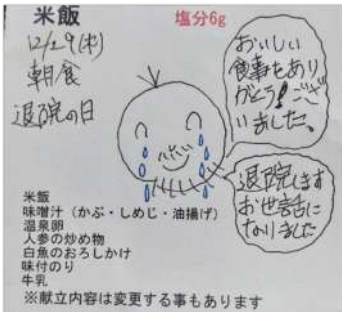 米飯
塩分6g
12/29(木)
朝食
退院の日
おいしい
食事をあり
がとう!ござ
いました。
退院します
お世話に
なりました
米飯
味噌汁(かぶ・しめじ・油揚げ)
温泉卵
人参の炒め物
白魚のおろしかけ
味付のり
牛乳
※献立内容は変更する事もあります